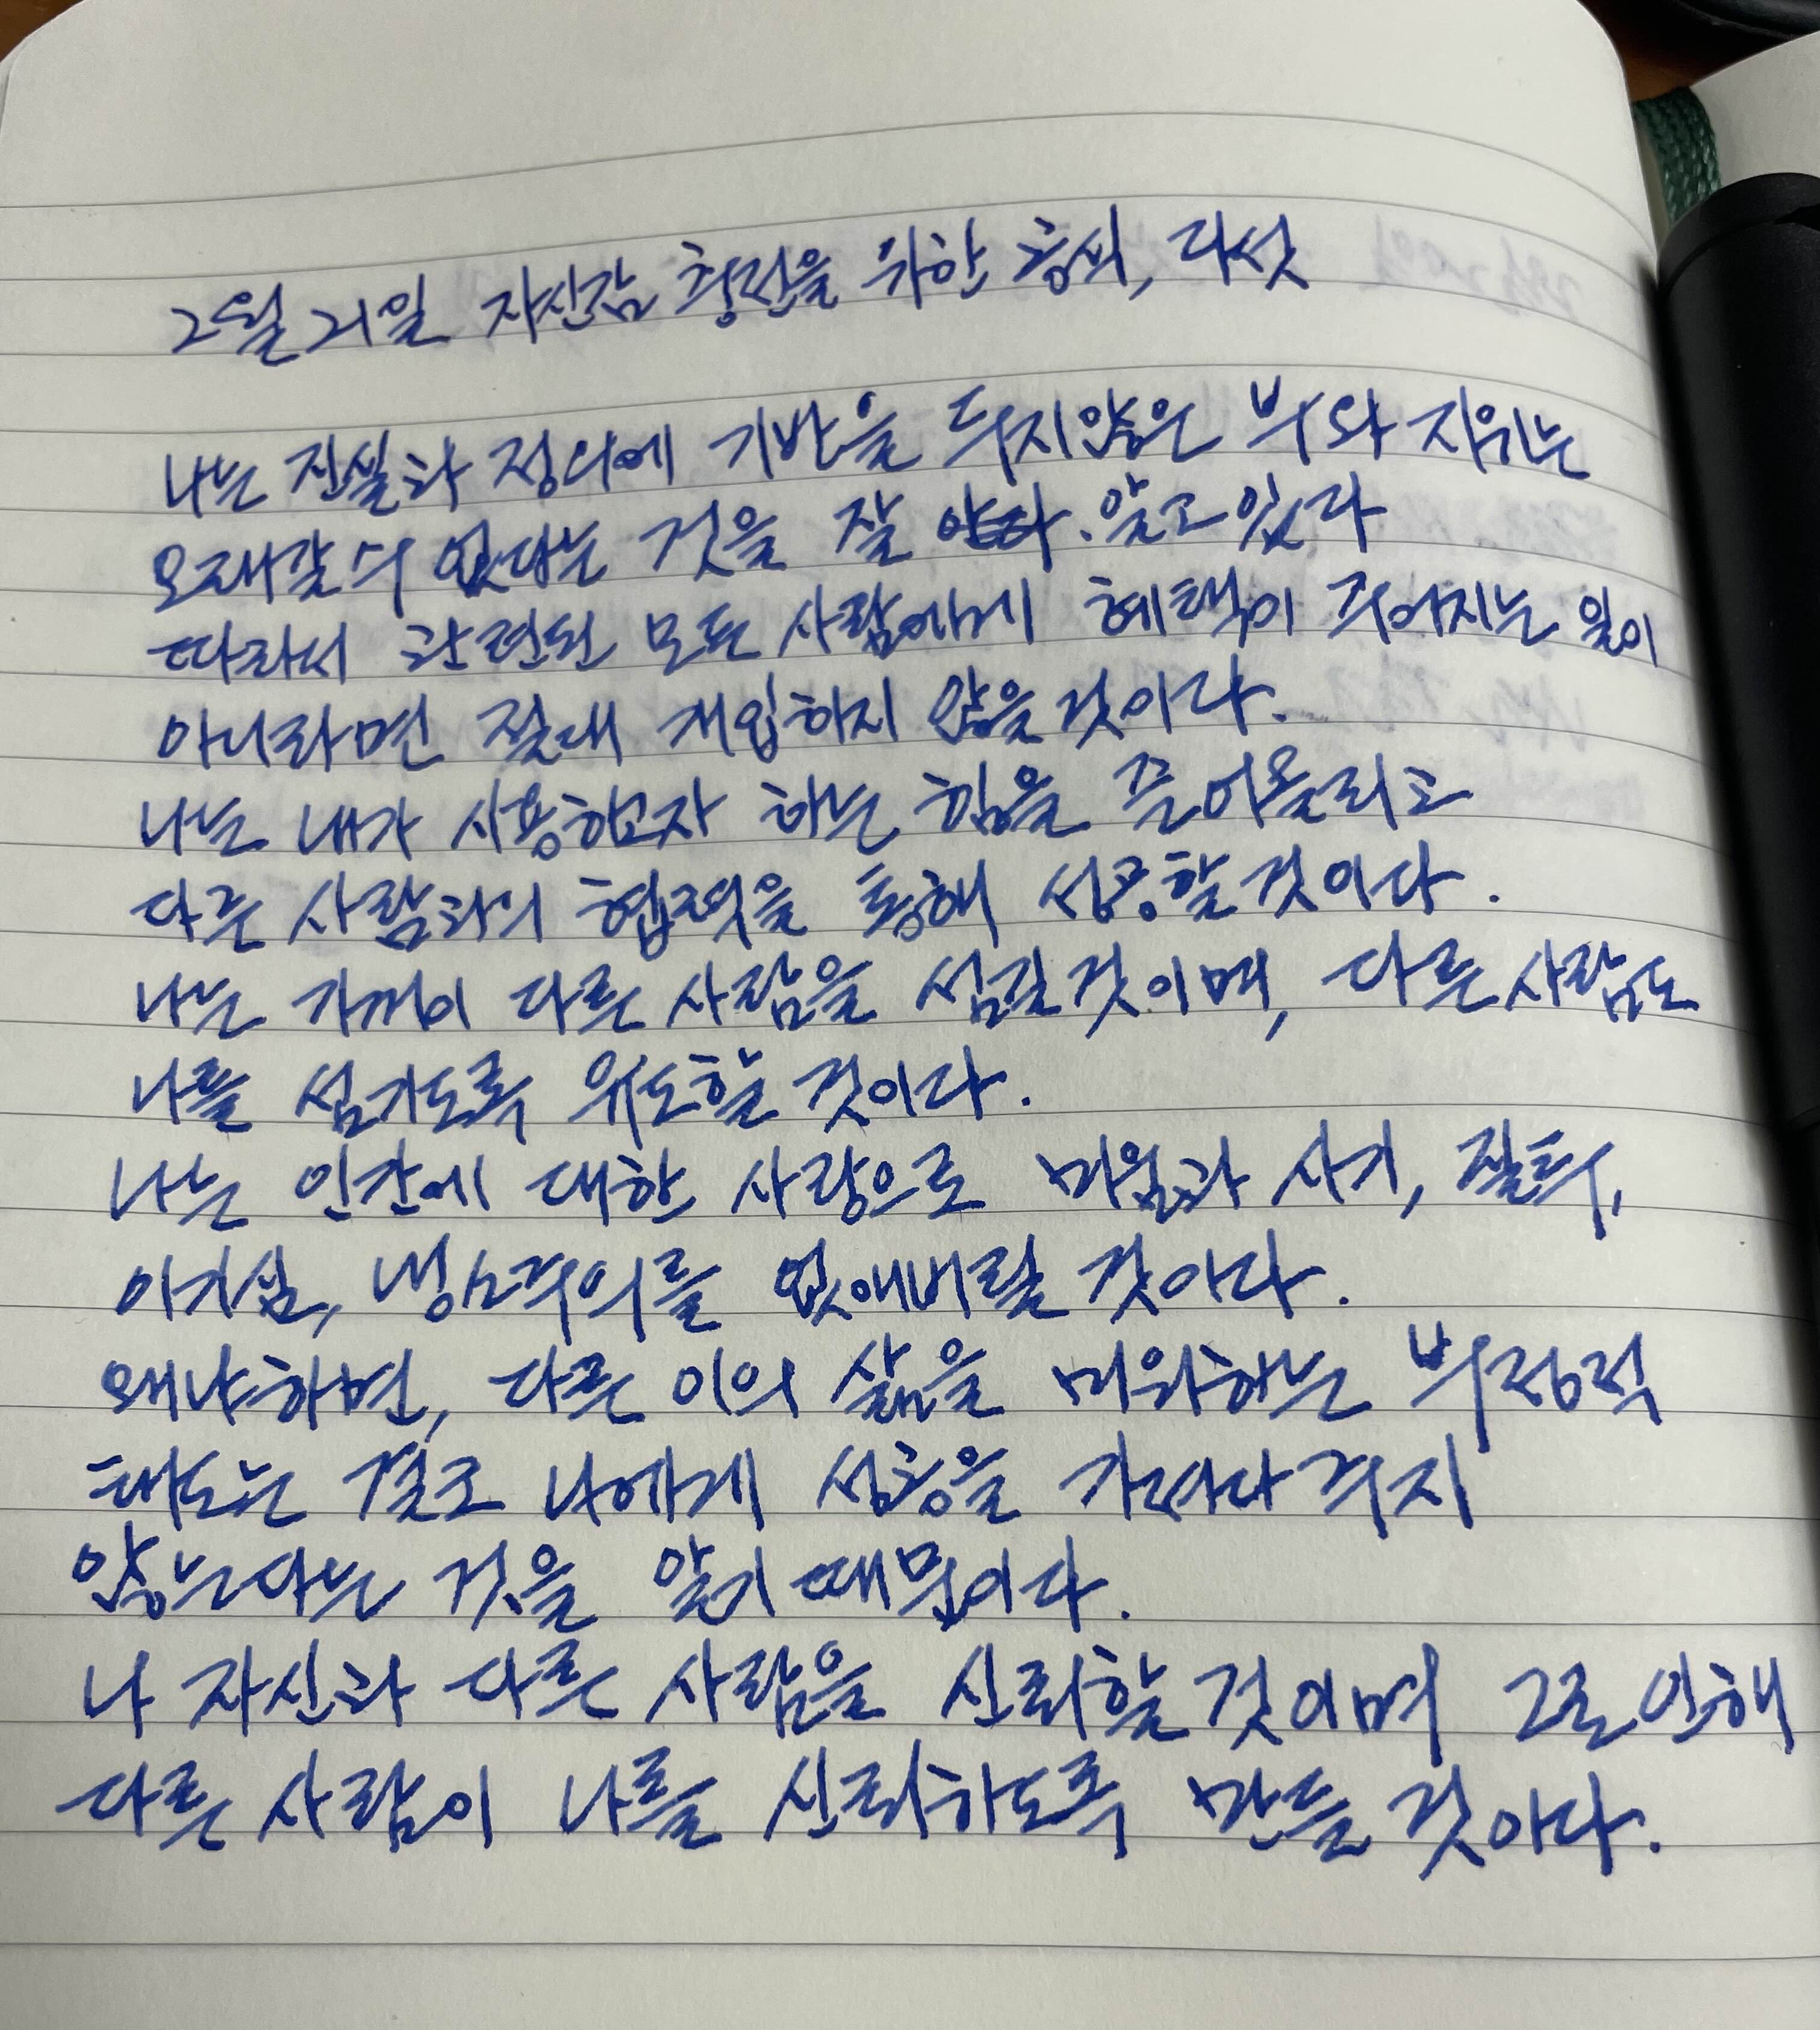 2월 21일 자신감 향상을 위한 공식, 다섯
나는 진실과 정의에 기반을 두지않은 부와 지위는
오래갈 수 없다는 것을 잘 안다. 알고 있다
따라서 관련된 모든 사람에게 혜택이 주어지는 일이
아니라면 절대 개입하지 않을 것이다.
나는 내가 사용하고자 하는 힘을 끌어올리고
다른 사람과의 협력을 통해 성공할 것이다.
나는 기꺼이 다른 사람을 섬길 것이며, 다른 사람도
나를 섬기도록 유도할 것이다.
나는 인간에 대한 사랑으로 미움과 시기, 질투,
이기심, 냉소주의를 없애버릴 것이다.
왜냐하면, 다른 이의 삶을 미워하는 부정적
태도는 결코 나에게 성공을 가져다 주지
않는다는 것을 알기 때문이다.
나 자신과 다른 사람을 신뢰할 것이며 그로 인해
다른 사람이 나를 신뢰하도록 만들 것이다.